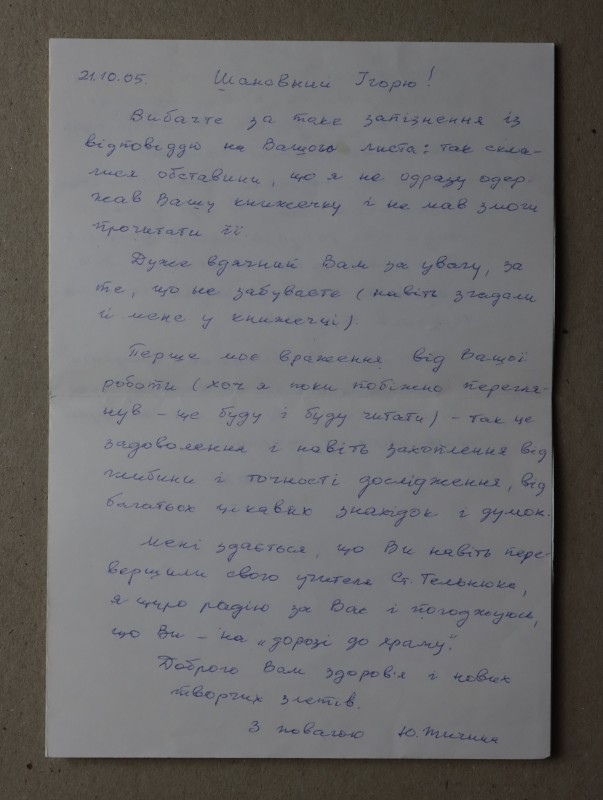 21.10.05. Шановний Ігорю!
Вибачте за таке запізнення із
відповіддю на Вашого листа: так скла-
лися обставини, що я не одразу одер-
жав Вашу книжечку і не мав змоги
прочитати її
Дуже вдячний Вам за увагу, за
те, що не забуваєте (навіть згадали
й мене у книжечці).
Перше моє враження від Вашої
роботи (хоч я поки побіжно перегля-
нув – ще буду і буду читати) – так це
задоволення і навіть захоплення від
глибини і точності дослідження, від
багатьох цікавих знахідок і думок.
Мені здається, що Ви навіть пере-
вершили свого учителя Ст. Тельнюка,
я щиро радію за Вас і погоджуюсь,
що Ви – на „дорозі до храму".
Доброго Вам здоров'я і нових
творчих злетів.
З повагою Ю. Тичина